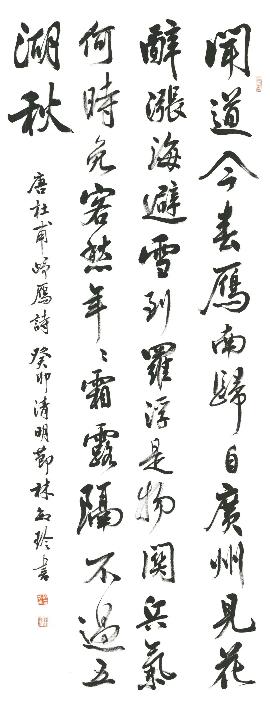 聞道今春雁南歸自廣州見花
辭漲海避雪到羅浮是物關兵氣
何時免客愁年〻霜露隔不過五
湖秋
唐杜甫歸雁詩癸卯清明節林玲書